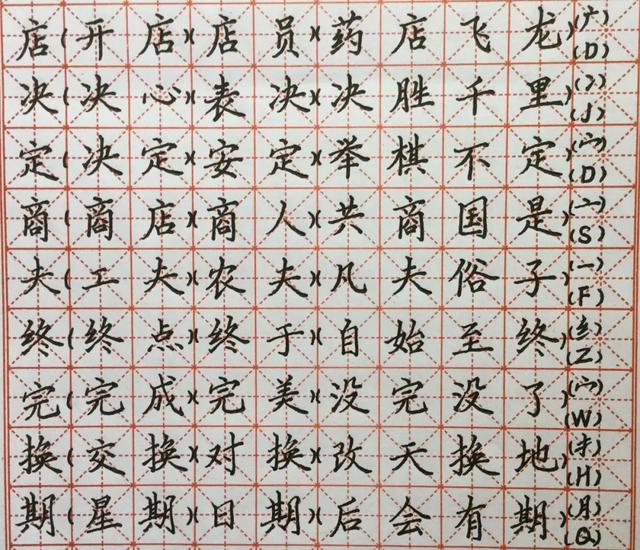 店(开店)(店员)(药店飞龙)(广)(D)
决(决心)(表决)(决胜千里)(冫)(J)
定(决定)(安定)(举棋不定)(宀)(D)
商(商店)(商人)(共商国是)(亠)(S)
夫(工夫)(农夫)(凡夫俗子)(一)(F)
终(终点)(终于)(自始至终)(纟)(Z)
完(完成)(完美)(没完没了)(宀)(W)
换(交换)(对换)(改天换地)(扌)(H)
期(星期)(日期)(后会有期)(月)(Q)